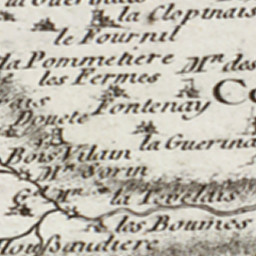 la Clopinais
le Fournil
la Pommetiere
les Fermes
Mn des
Fontenay
Co
Douete
la Guerina
Bois Vilain
Mr Sorin
Gd Mn
la Tevelais
les Boumes
loussaudiere